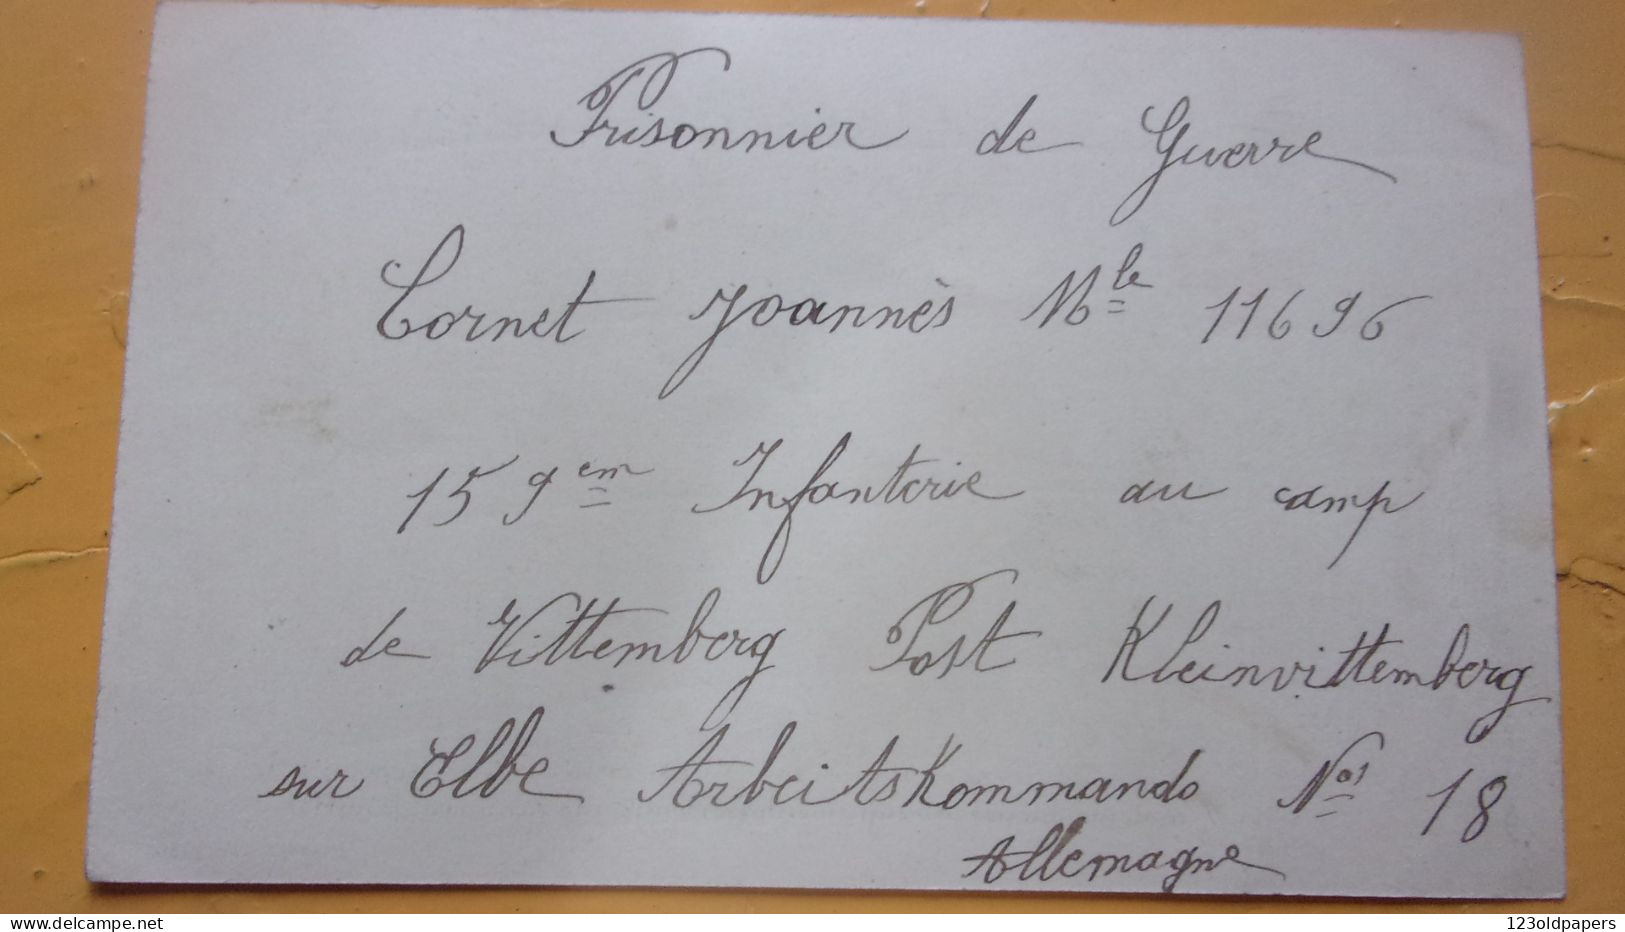 Prisonnier de Guerre
Cornet Joannès Mle 11696
159em Infanterie au camp
de Vittemberg Post Kleinvittemberg
sur Elbe Arbeitskommando Nos 18
Allemagne
delcampe.net
123oldpapers